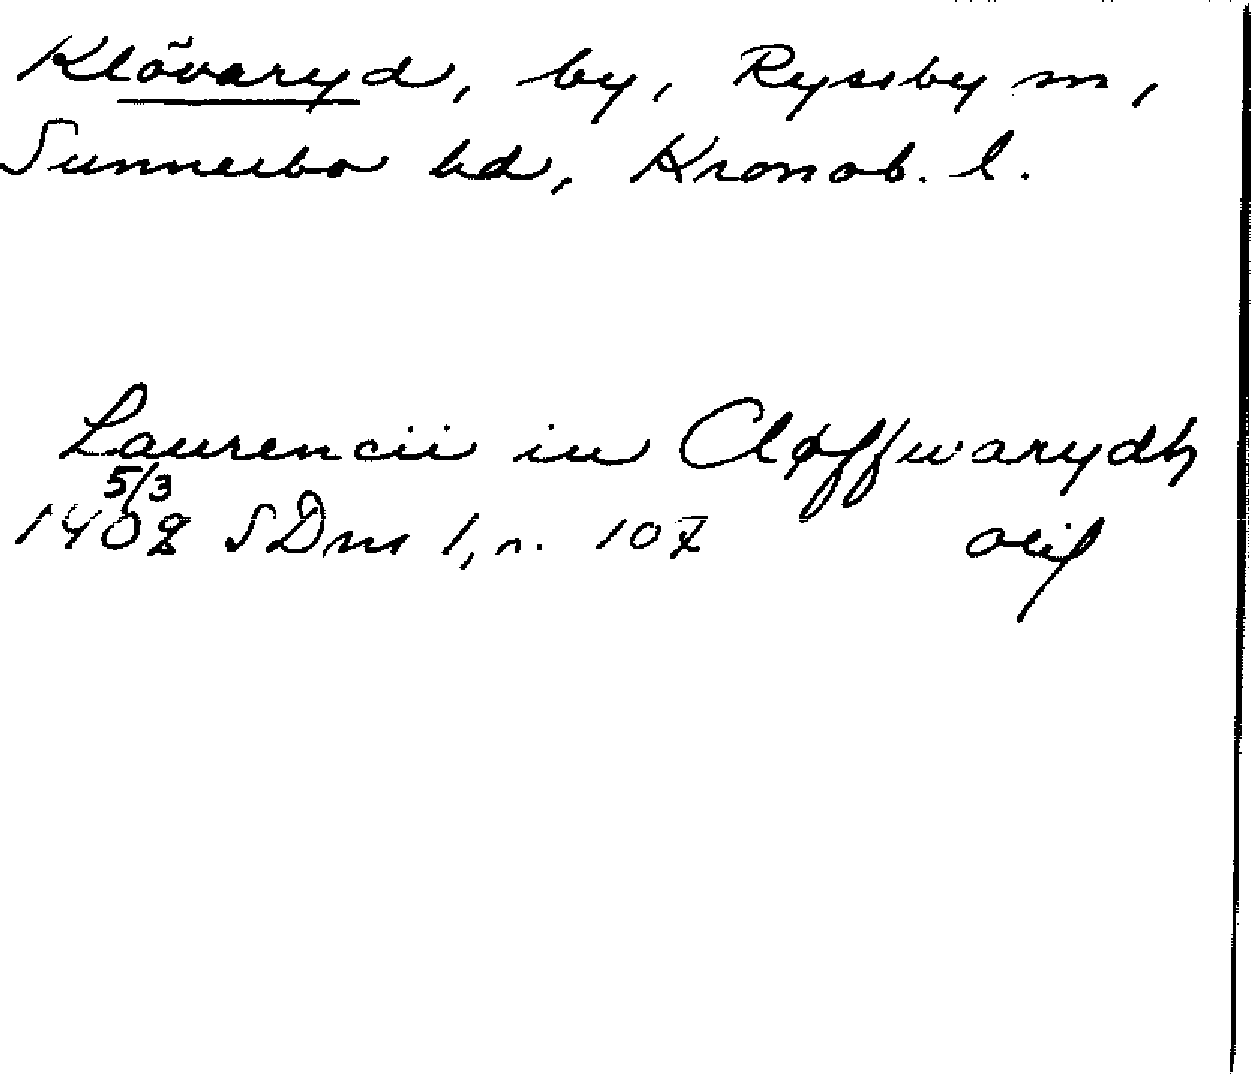 Klövaryd, by, Ryssby sn,
Sunnerbo hd, Kronob. l.
Laurencii in Cløffwarydh
5/3
1402 SDns 1, n. 107 oeif